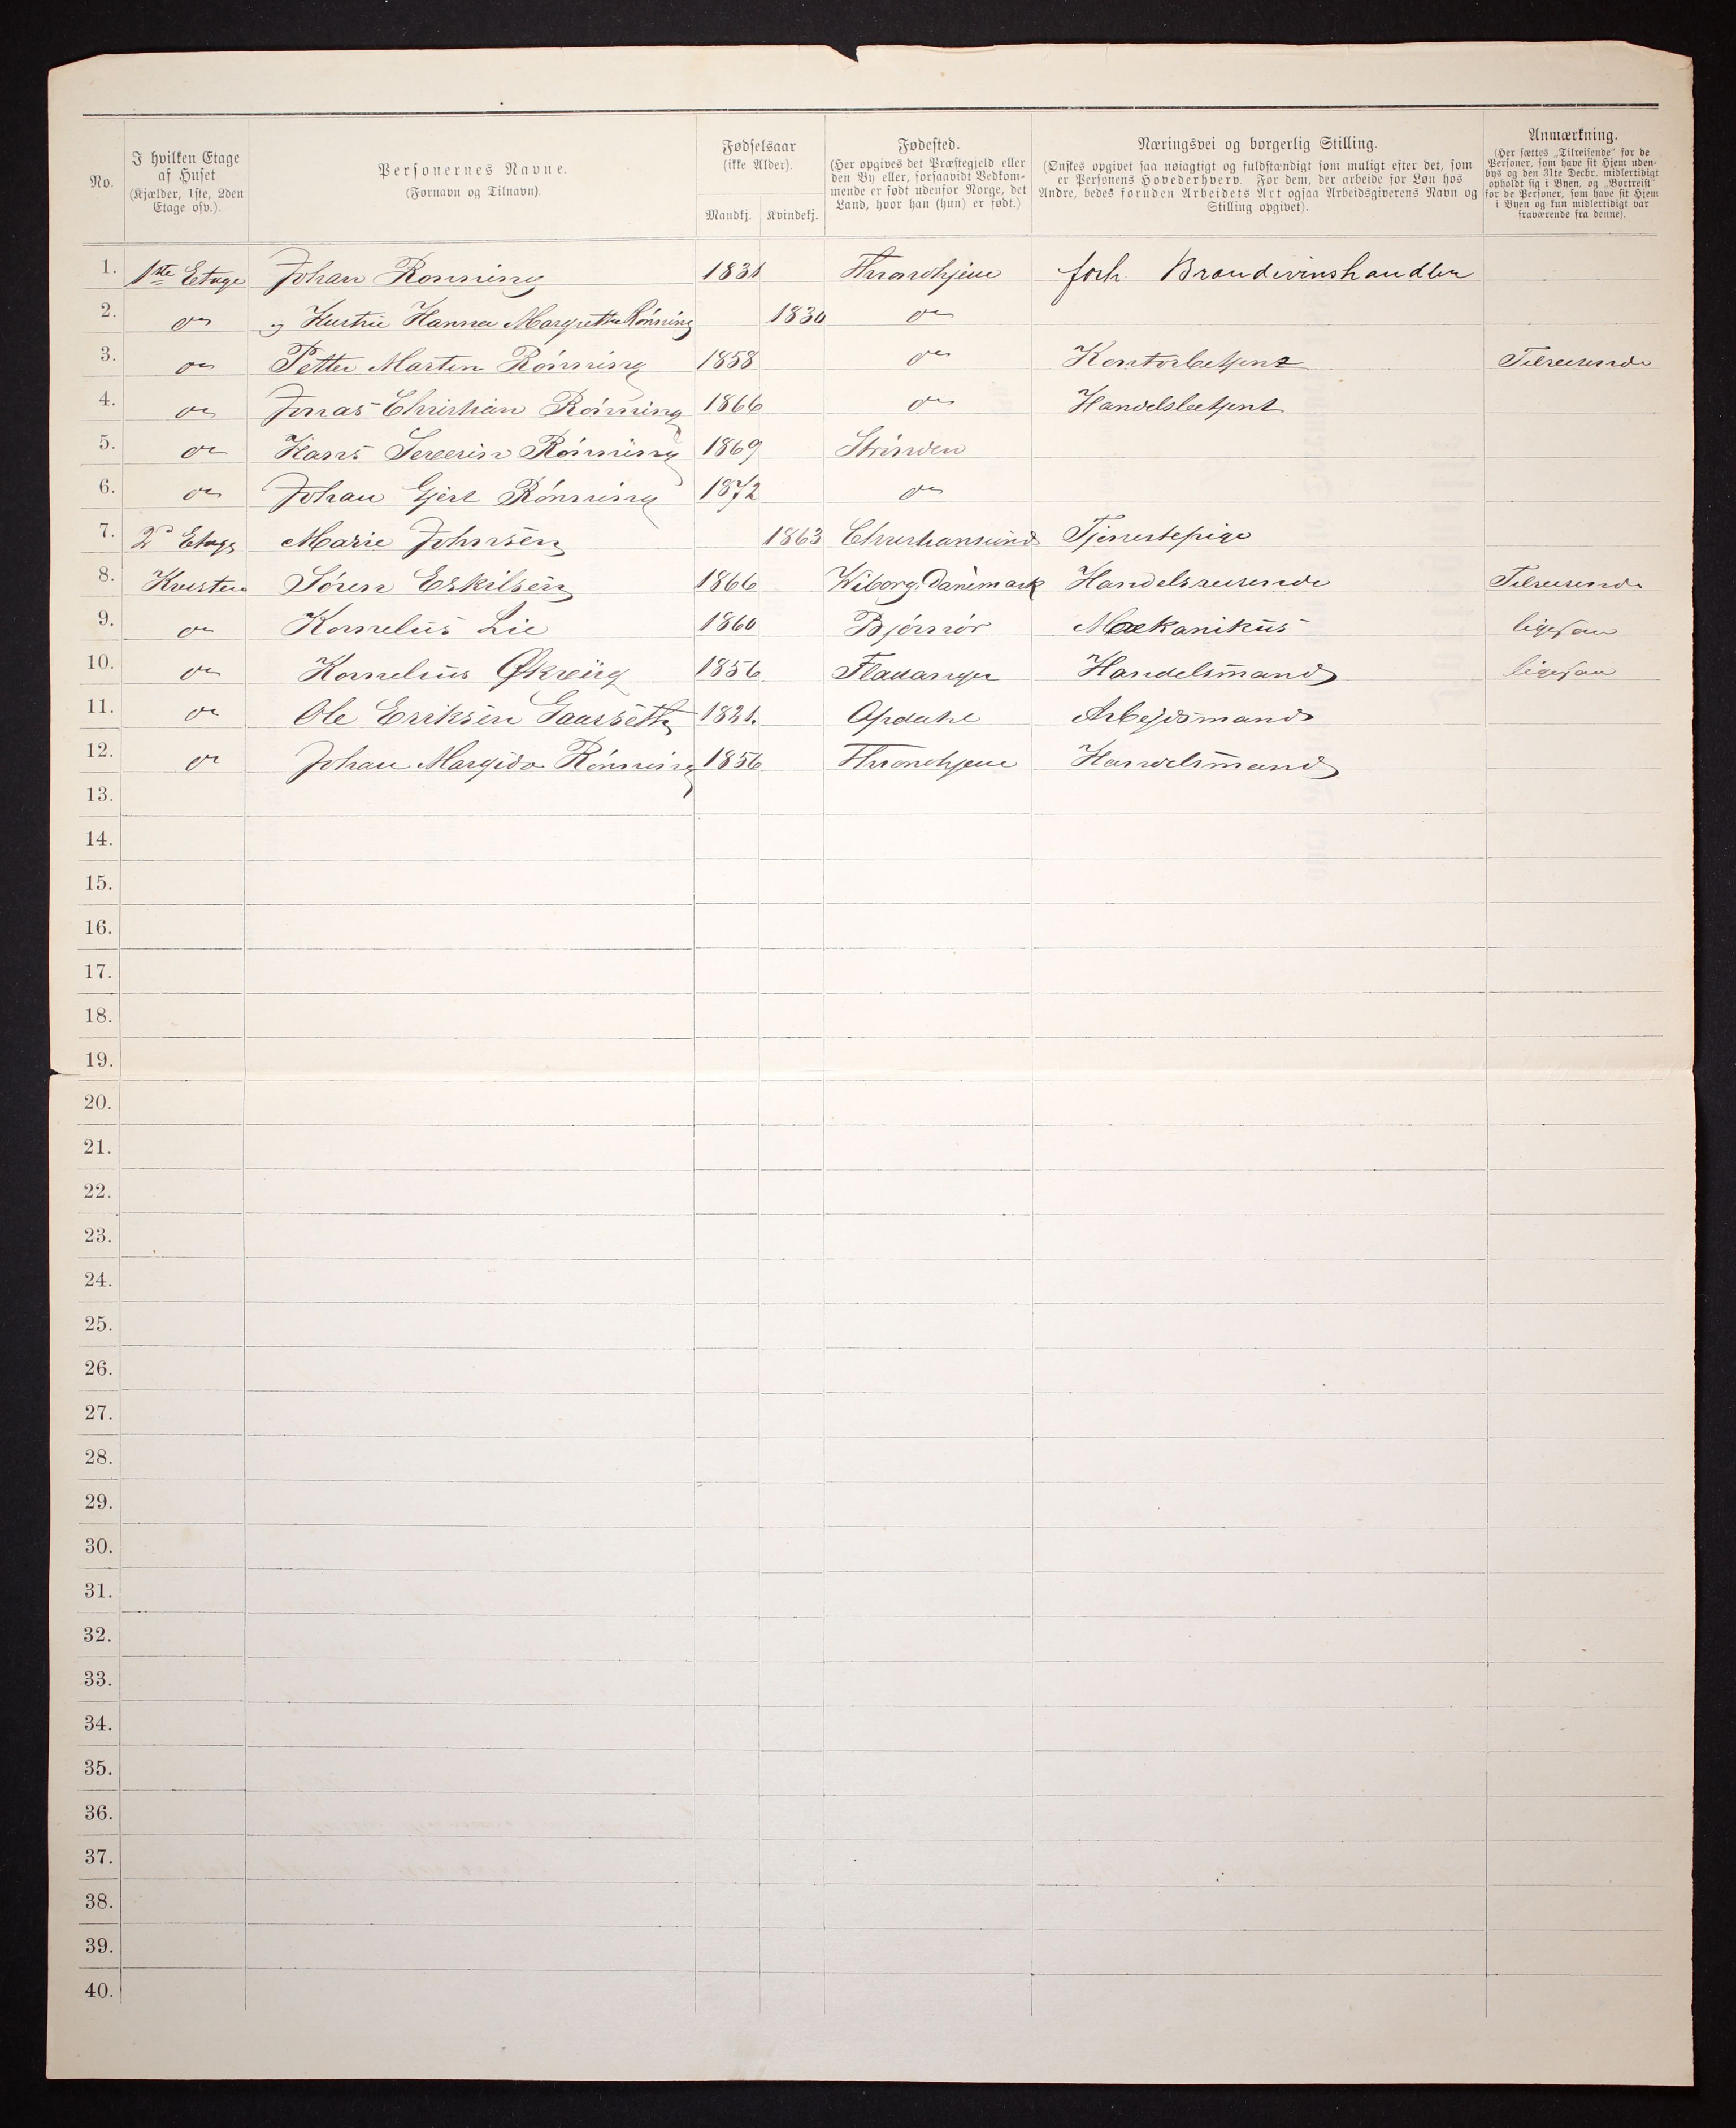 No.
I hvilken Etage
af Huset
(Kjælder, 1ste, 2den
Etage osv.).
Personernes Navne.
(Fornavn og Tilnavn).
Fødselsaar
(ikke Alder).
Mandkj. Kvindekj.
Fødested.
(Her opgives det Præstegjeld eller
den By eller, forsaavidt Vedkom-
mende er født udenfor Norge, det
Land, hvor han (hun) er født.)
Næringsvei og borgerlig Stilling.
(Ønskes opgivet saa nøiagtigt og fuldstændigt som muligt efter det, som
er Personens Hovederhverv. For dem, der arbeide for Løn hos
Andre, bedes foruden Arbeidets Art ogsaa Arbeidsgiverens Navn og
Stilling opgivet).
Anmærkning.
(Her sættes „Tilreisende" for de
Personer, som have sit Hjem uden-
bys og den 31te Decbr. midlertidigt
opholdt sig i Byen, og „Bortreist"
for de Personer, som have sit Hjem
i Byen og kun midlertidigt var
fraværende fra denne).
1. 1ste Etage Johan Ronning 1831 Throndhjem forh. Brændevinshandler
2. do Hustru Hanna Margrethe Rónning 1830 do
3. do Petter Marten Rónning 1858 do Kontorbetjent Tilreisende
4. do Jonas Christian Rónning 1866 do Handelsbetjent
5. do Hans Severin Rónning 1869 Strinden
6. do Johan Gjert Rónning 1872 do
7. 2d Etage Marie Johnsen 1863 Christiansund Tjenestepige
8. Kvisten Sóren Eskilsen 1866 Wiborg, Danemark Handelsreisende Tilreisende
9. do Kornelius Lie 1860 Bjórnór Mekanikus ligesaa
10. do Kornelius Økrejg 1856 Fladanger Handelsmand ligesaa
11. do Ole Eriksen Gaarseth 1821. Opdahl Arbejdsmand
12. do Johan Margido Rónning 1856 Throndhjem Handelsmand
13.
14.
15.
16.
17.
18.
19.
20.
21.
22.
23.
24.
25.
26.
27.
28.
29.
30.
31.
32.
33.
34.
35.
36.
37.
38.
39.
40.